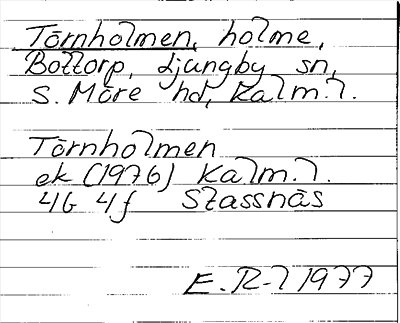 Törnholmen, holme,
Bottorp, Ljungby sn,
S. Möre hd, Kalm. l.
Törnholmen
ek (1976) Kalm. l.
4G 4f Stassnäs
E. R-l 1977